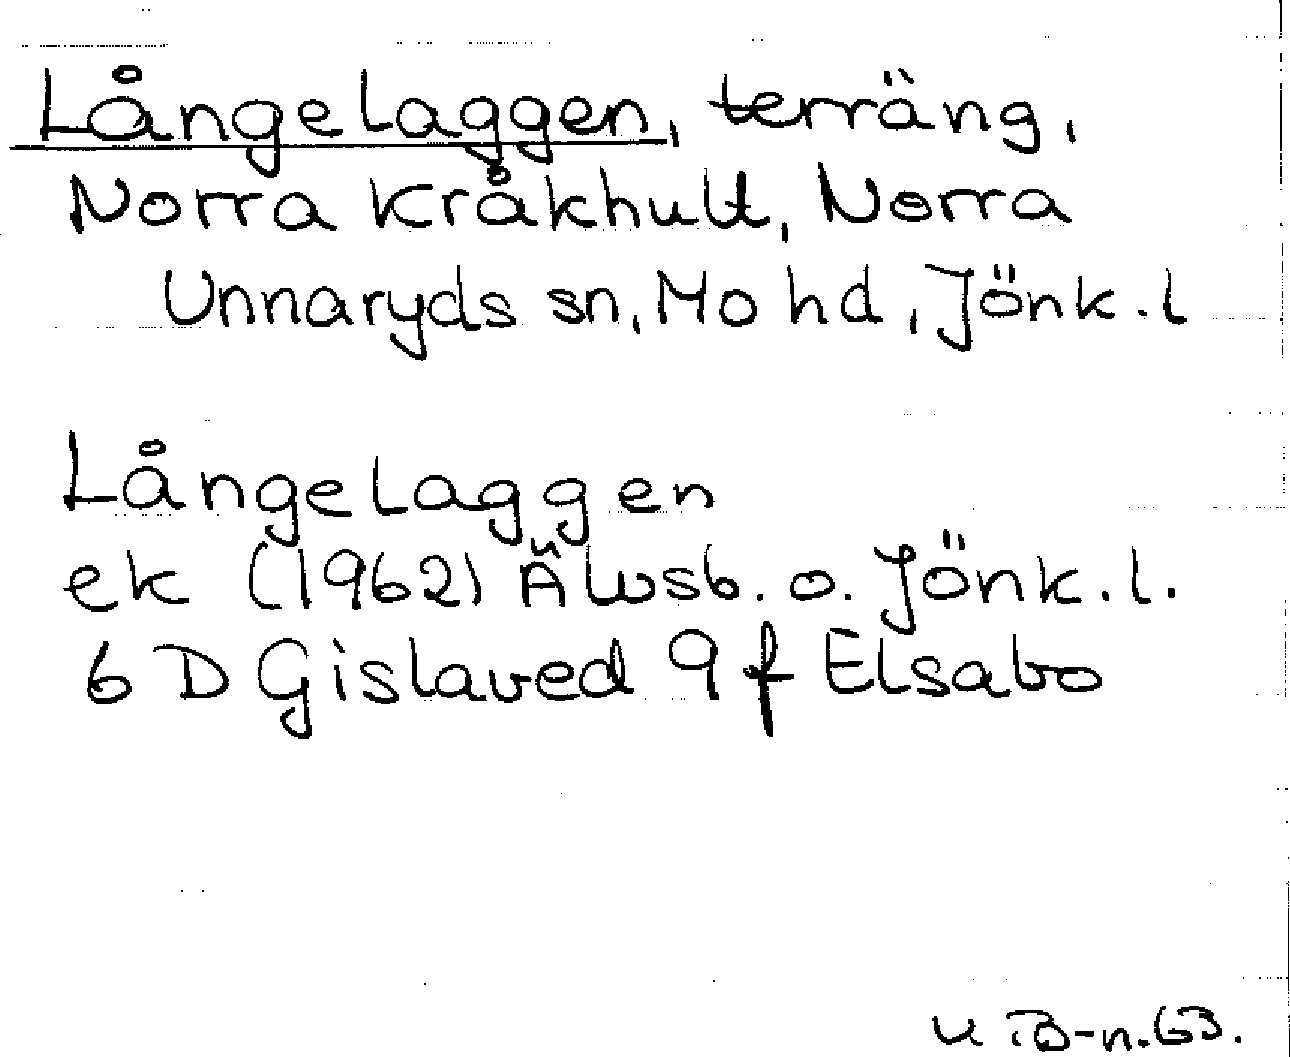 Långelaggen, terräng,
Norra Kråkhult, Norra
Unnaryds sn, Mo hd, Jönk. l
Långelaggen
ek (1962) Älvsb. o. Jönk. l.
6 D Gislaved 9 f Elsabo